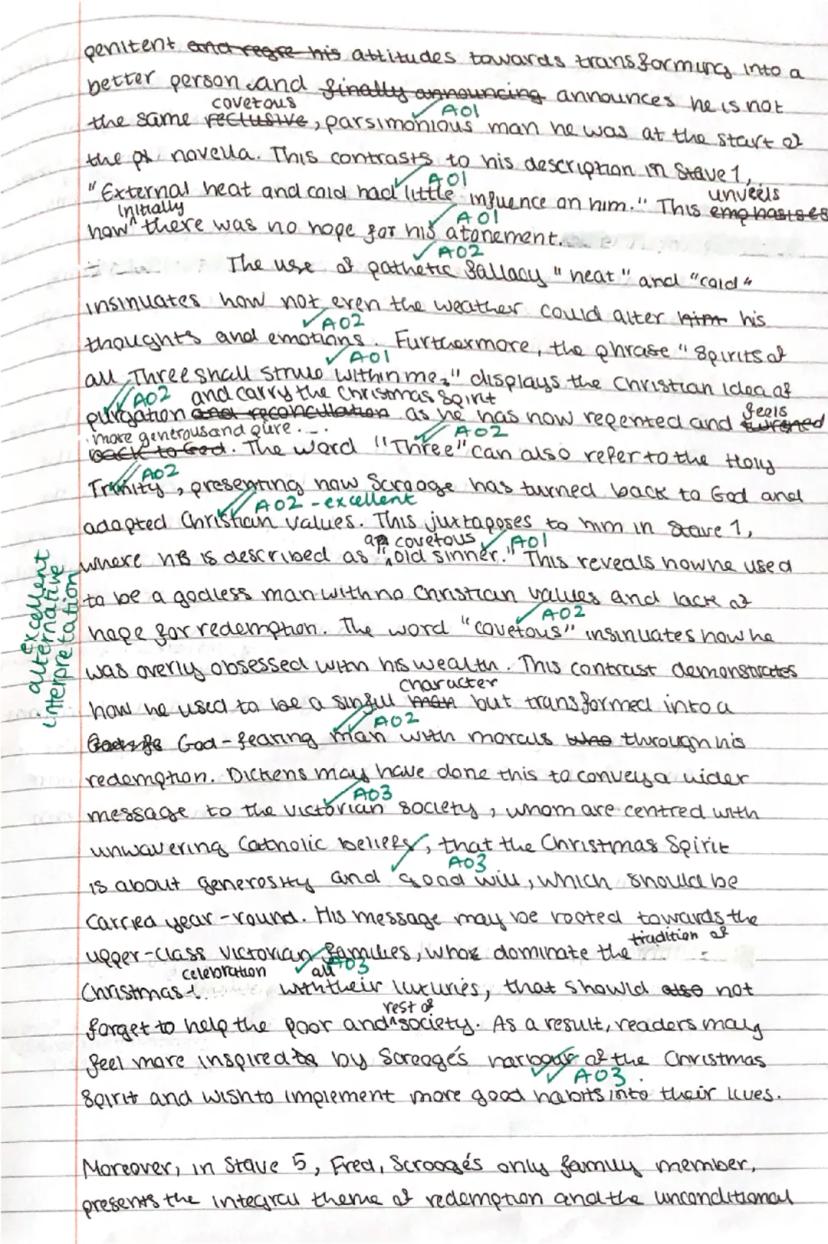 penitent and regre his attitudes towards transforming into a
better person and finally announcing announces he is not
covetous
AO1
the same reclusive, parsimonious man he was at the start of
the pl novella. This contrasts to his description in Stave 1,
AO1
"External heat and cold had little influence on him." This emphasises
unveils
initially
AO1
how there was no hope for his atonement.
AO2
The use of pathetic fallacy "heat" and "cold"
insinuates how not even the weather could alter him his
AO2
thoughts and emotions. Furthermore, the phrase "Spirits of
AO1
all Three shall strive within me," displays the Christian idea of
AO2
and carry the Christmas Spirit
purgation and reconciliation as he has now repented and turned
feels
more generous and pure...
AO2
back to God. The word "Three" can also refer to the Holy
AO2
Trinity, presenting how Scrooge has turned back to God and
AO2 - excellent
adopted Christian values. This juxtaposes to him in Stave 1,
a covetous
AO1
where he is described as "old sinner." This reveals how he used
to be a godless man with no Christian values and lack of
AO2
hope for redemption. The word "covetous" insinuates how he
was overly obsessed with his wealth. This contrast demonstrates
character
how he used to be a sinful man but transformed into a
AO2
God-fearing man with morals who through his
redemption. Dickens may have done this to convey a wider
AO3
message to the Victorian society, whom are centred with
unwavering Catholic beliefs, that the Christmas Spirit
AO3
is about generosity and good will, which should be
carried year-round. His message may be rooted towards the
upper-class Victorian families, whom dominate the
tradition of
AO3
celebration
all
Christmas with their luxuries, that should also not
rest of
forget to help the poor and society. As a result, readers may
feel more inspired to by Scrooge's harbour of the Christmas
AO3
Spirit and wish to implement more good habits into their lives.
Moreover, in Stave 5, Fred, Scrooge's only family member,
presents the integral theme of redemption and the unconditional
excellent
alternative
interpretation